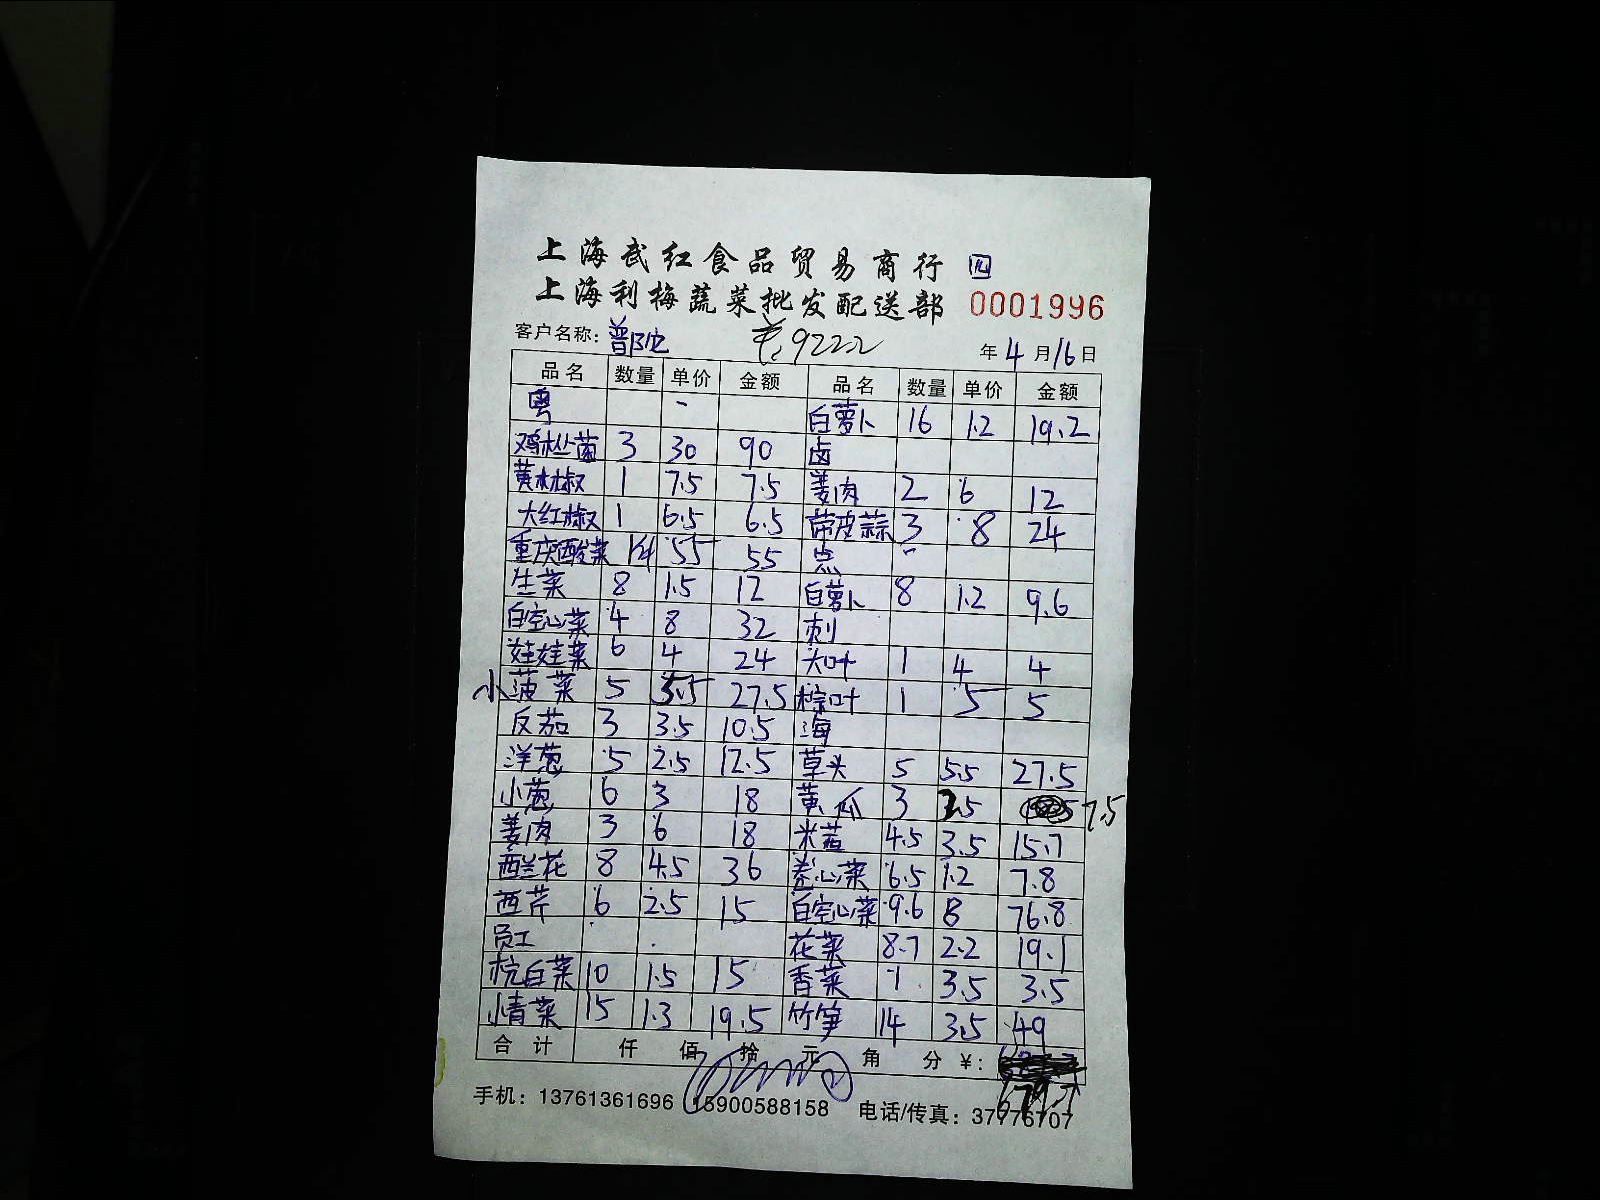 上海武红食品贸易商行
上海利梅蔬菜批发配送部 0001996
客户名称：普陀 年4月16日
品名 数量 单价 金额 品名 数量 单价 金额
粤 白萝卜 16 1.2 19.2
鸡枞菌 3 30 90 卤
黄林椒 1 7.5 7.5 姜肉 2 6 12
大红椒 1 6.5 6.5 带皮蒜 3 8 24
重庆酸菜 1件 55 55 点
生菜 8 1.5 12 白萝卜 8 1.2 9.6
白空心菜 4 8 32 刺
娃娃菜 6 4 24 大叶 1 4 4
小菠菜 5 5.5 27.5 棕叶 1 5 5
反茄 3 3.5 10.5 海
洋葱 5 2.5 12.5 草头 5 5.5 27.5
小葱 6 3 18 黄瓜 3 2.5 7.5
姜肉 3 6 18 米苋 4.5 3.5 15.7
西兰花 8 4.5 36 卷心菜 6.5 1.2 7.8
西芹 6 2.5 15 白空心菜 9.6 8 76.8
员工 花菜 8.7 2.2 19.1
杭白菜 10 1.5 15 香菜 1 3.5 3.5
小青菜 15 1.3 19.5 竹笋 14 3.5 49
合计 仟 佰 拾 元 角 分 ¥：
手机：13761361696 15900588158 电话/传真：37776707